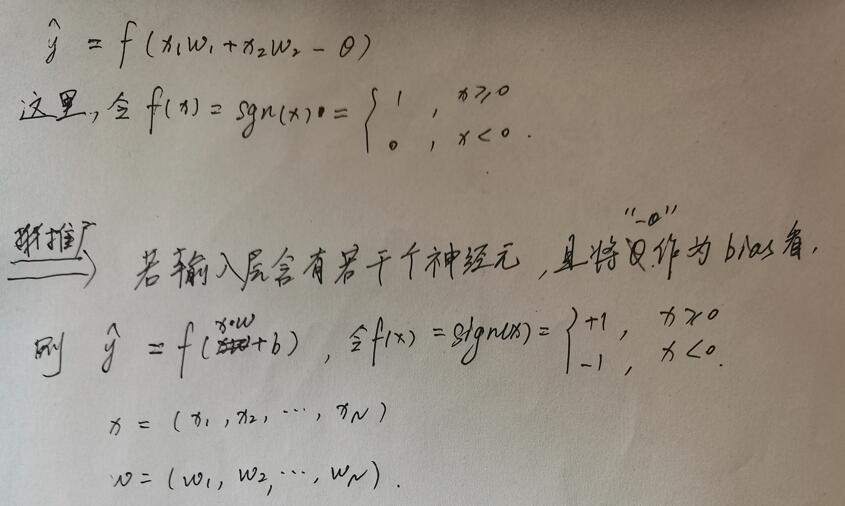 ŷ = f(x₁w₁+x₂w₂-θ)
这里,令 f(x) = sgn(x) = { 1 , x≥0
0 , x<0.
推广
"-θ"
⟹ 若输入层含有若干个神经元,且将θ作为bias看,
则 ŷ = f(x·w+b) , 令f(x) = sign(x) = { +1, x≥0
-1, x<0.
x = (x₁,x₂,⋯,x_N)
w = (w₁,w₂,⋯,w_N).